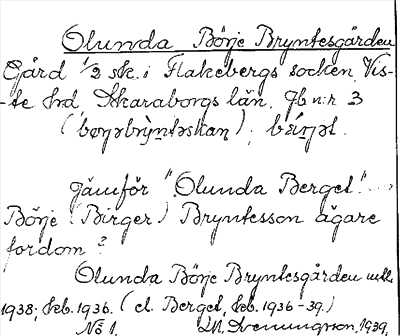 Olunda Börje Bryntesgården
Gård 1/2 sk. i Flakebergs socken, Vis-
-te hd, Skaraborgs län. Jb n:r 3
Jämför "Olunda Berget".
Börje (Birger) Bryntesson ägare
fordom?
Olunda Börje Bryntesgården
1938; Feb. 1936. (cl. Berget, Feb. 1936-39.)
No 1. 1939.